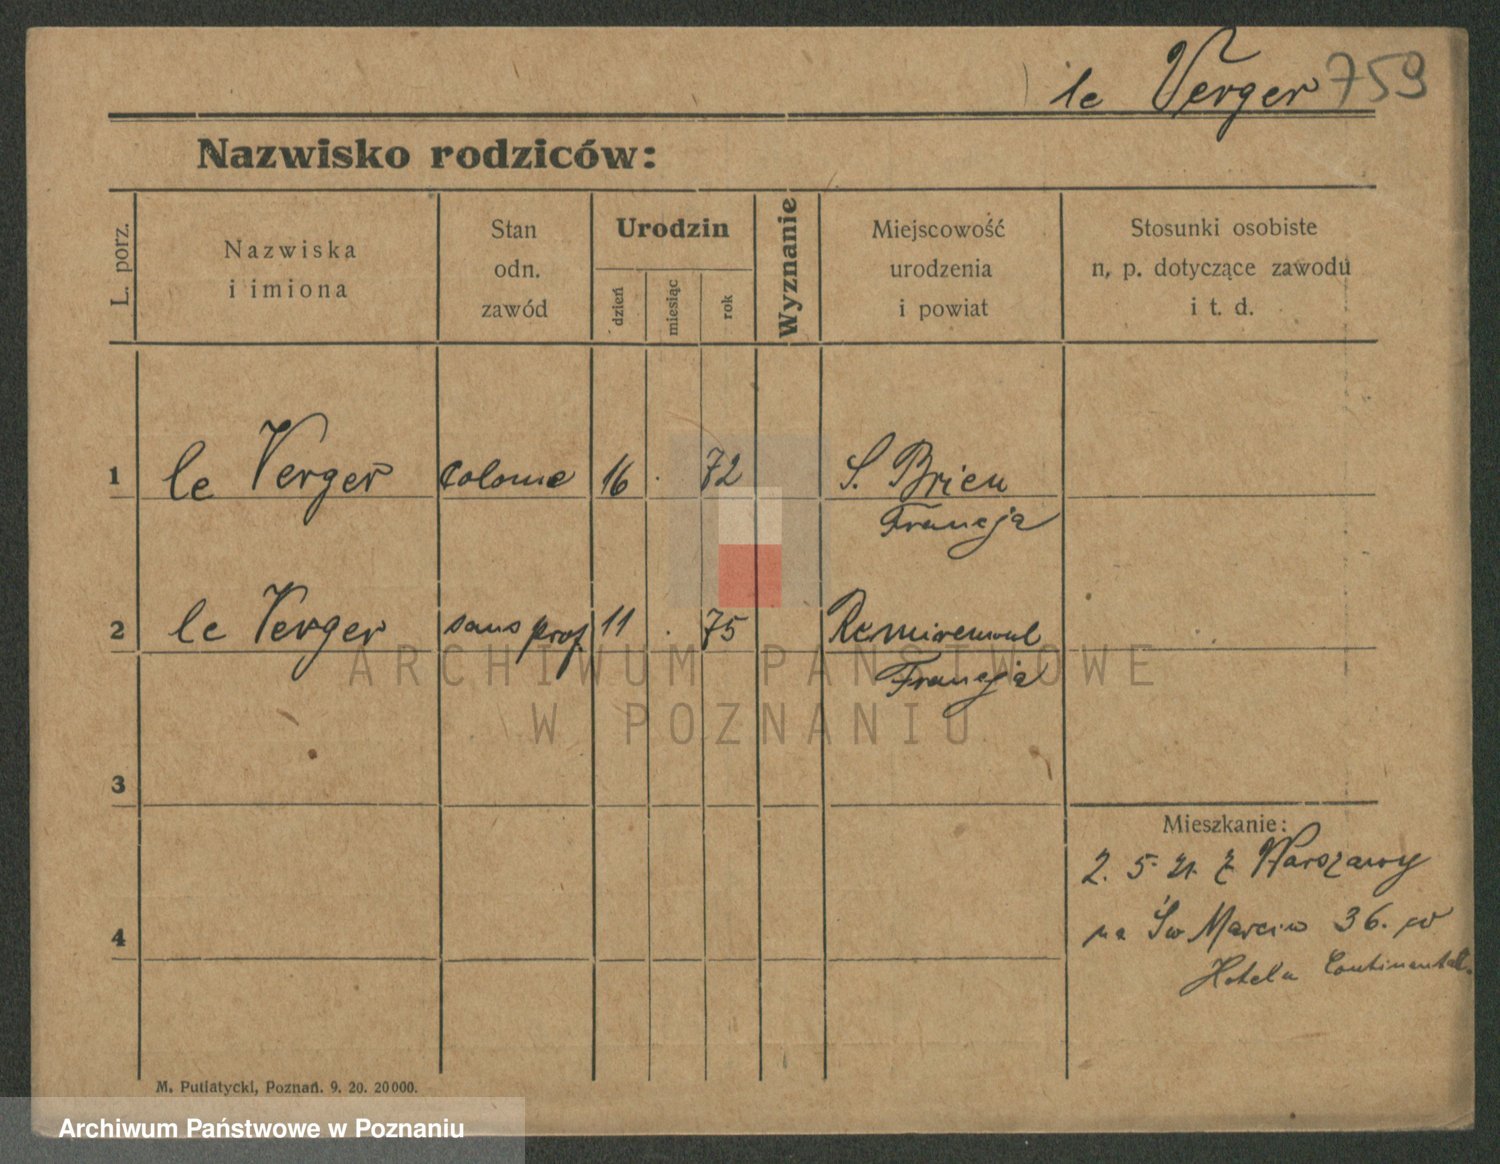 le Verger 759
Nazwisko rodziców:
L. porz.
Nazwiska
i imiona
Stan
odn.
zawód
Urodzin
dzień
miesiąc
rok
Wyznanie
Miejscowość
urodzenia
i powiat
Stosunki osobiste
n, p. dotyczące zawodu
i t. d.
1 le Verger 16 . 72 S. Brieu
Francja
2 le Verger sans prof 11 . 75
Francja
ARCHIWUM PAŃSTWOWE
W POZNANIU
3
4
Mieszkanie:
2. 5. 21. z Warszawy
na Św Marcin 36. w
Hotelu
M. Putiatycki, Poznań. 9. 20. 20000.
Archiwum Państwowe w Poznaniu